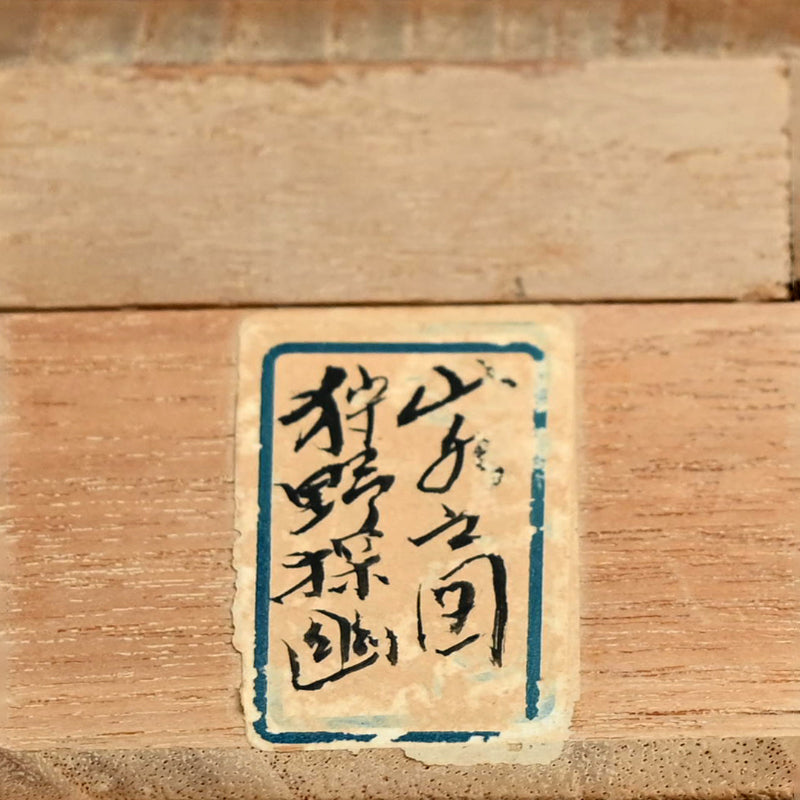 山水之図
狩野探幽